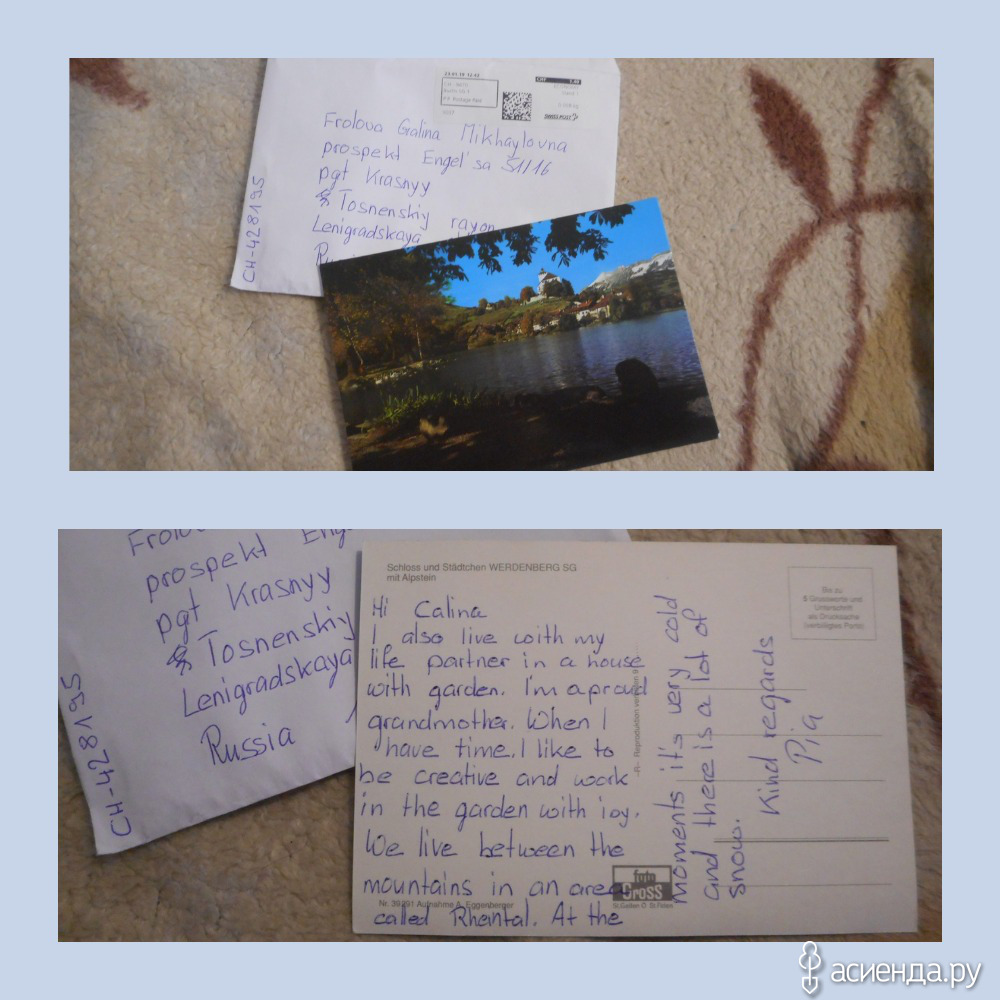 Frolova Galina Mikhaylovna
prospekt Engel'sa 51/16
pgt Krasnyy
Tosnenskiy rayon
Lenigradskaya
CH-428195
SWISS POST
Frolov
prospekt Eng
pgt Krasnyy
Tosnenskiy
Lenigradskaya
Russia
CH-428195
Schloss und Städtchen WERDENBERG SG
mit Alpstein
Bei zu
5 Grussworte und
Unterschrift
als Drucksache
Hi Calina
I also live with my
life partner in a house
with garden. I'm a proud
grandmother. When I
have time, I like to
be creative and work
in the garden with ioy.
We live between the
mountains in an area
called Rheintal. At the
moments it's very cold
and there is a lot of
snow.
Kind regards
Pia
foto
Gross
St.Gallen
Aufnahme A. Eggenberger
асиенда.ру